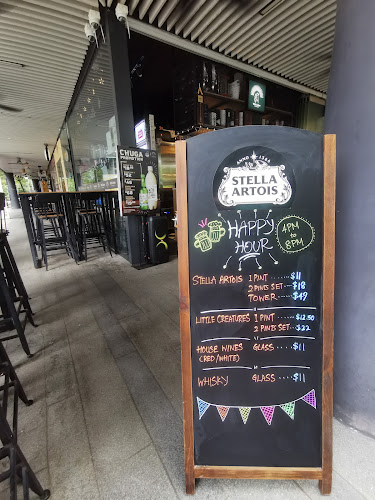 CHUGA
PROMOTION
ANNO 1366
STELLA
ARTOIS
HAPPY
HOUR
4PM
to
8PM
STELLA ARTOIS 1 PINT ...... $11
2 PINTS SET--- $18
TOWER.... $49
LITTLE CREATURES 1 PINT ..... $12.50
2 PINTS SET--- $22
HOUSE WINES GLASS ---- $11
(RED/WHITE)
WHISKY GLASS --- $11